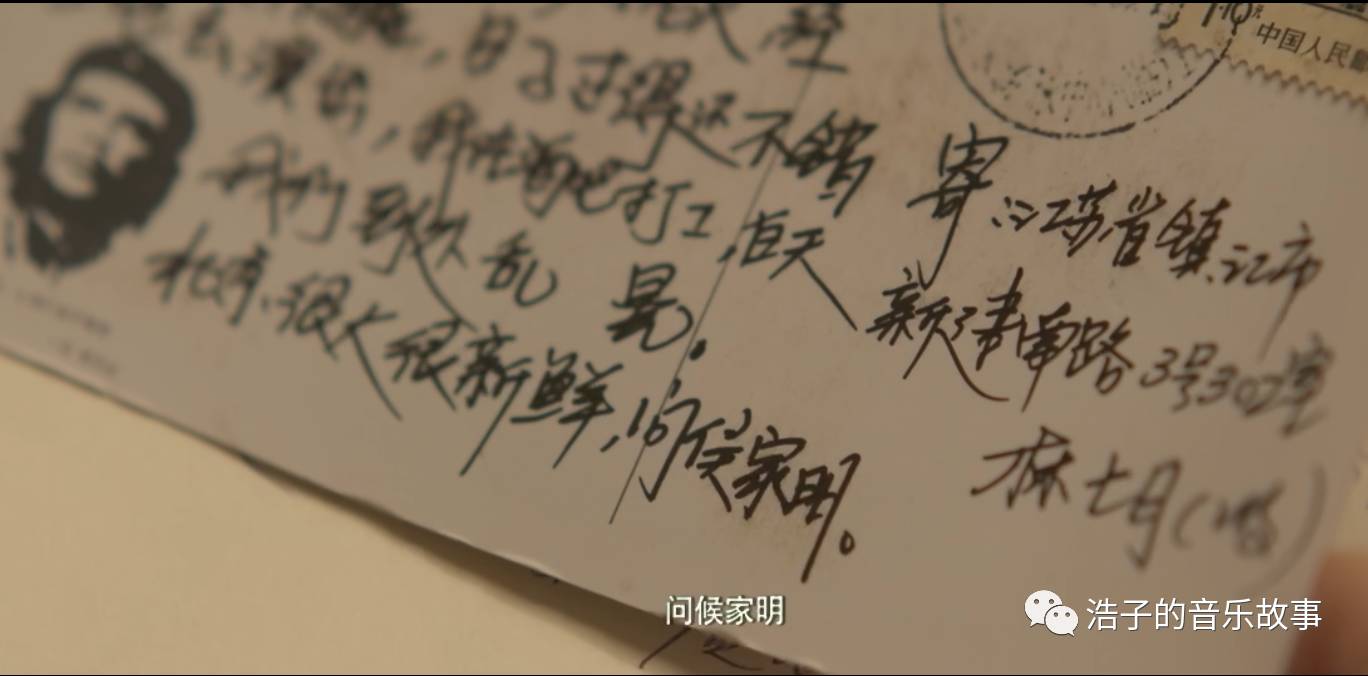 ，日子过得还不错
去演出，我在酒吧打工，白天
我们到处乱晃。
北京很大很新鲜，问候家明。
中国人民邮
寄：江苏省镇江市
新建南路3号302室
林七月（收）
问候家明
浩子的音乐故事